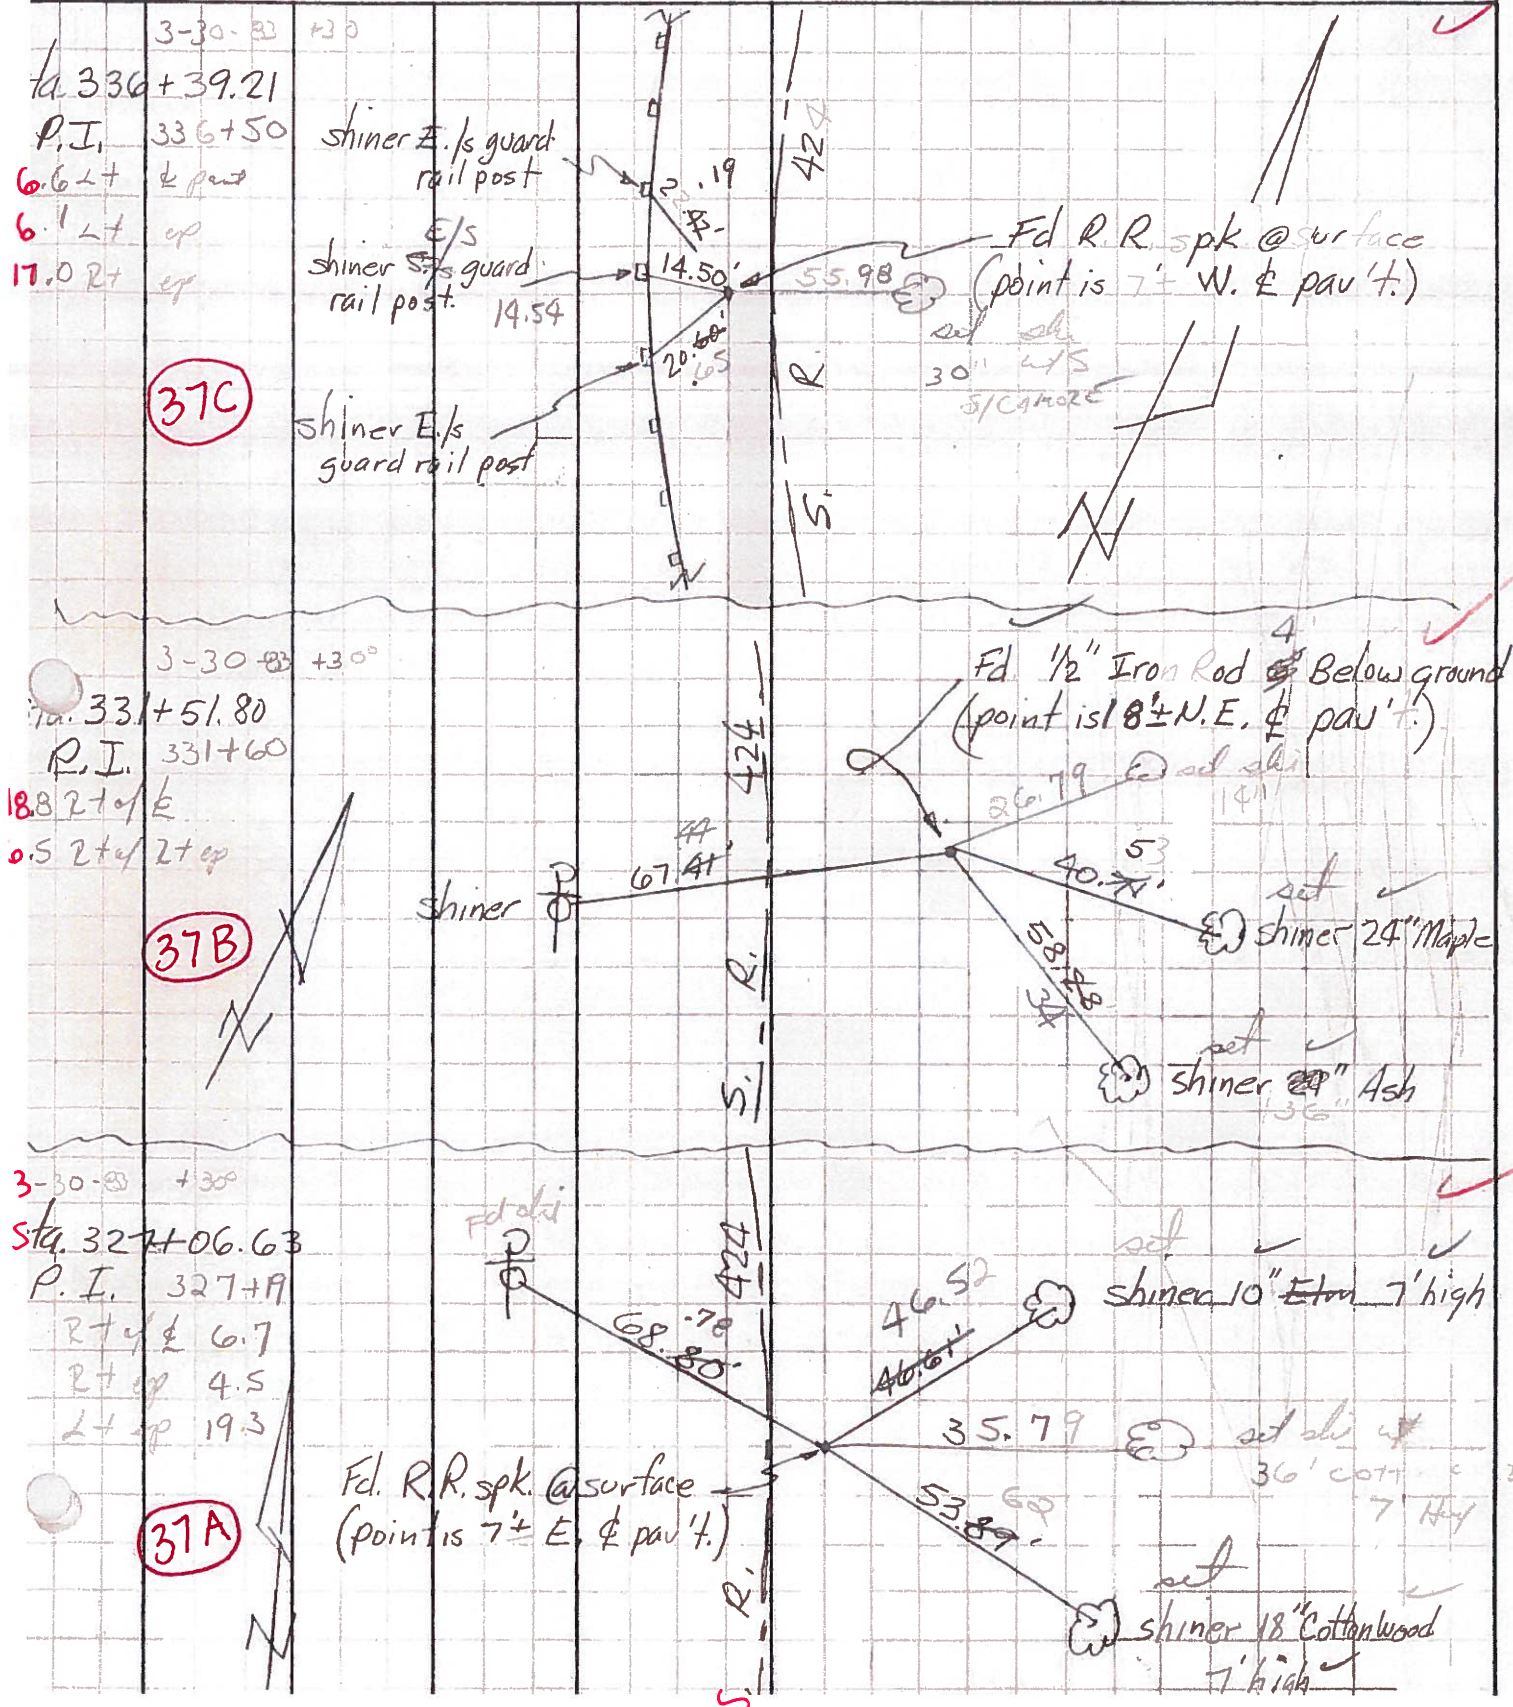 3-30-83 +30
ta. 336+39.21
P.I. 336+50
6.6 Lt ₵ pavt
6.1 Lt ep
17.0 Rt ep
37C
shiner E./s guard
rail post
E/S
shiner guard
rail post.
14.54
shiner E./s
guard rail post
.19
14.50'
20.60'
.65
424
R.
S.
55.98
Fd R.R. spk @ surface
(point is 7'± W. ₵ pav't.)
set shi
30" w/s
N
3-30-83 +30°
ta. 331+51.80
P.I. 331+60
18.8 Rt of ₵
6.5 Rt of Rt ep
37B
N
shiner
P
44
67.41'
424
R.
S.
4
Fd 1/2" Iron Rod Below ground
(point is 18'± N.E. ₵ pav't.)
26.79
set shi
14"
53
40.
set
shiner 24" Maple
58.48
34
set
shiner " Ash
36"
3-30-83 +30°
Sta. 327+06.63
P.I. 327+19
Rt of ₵ 6.7
Rt ep 4.5
Lt ep 19.3
37A
N
Fd shi
P
68.80
.78
424
46.52
46.61'
set
shiner 10" Elm 7' high
35.79
set shi
36" cott
7'
Fd. R.R. spk. @ surface
(point is 7'± E. ₵ pav't.)
53.89
60
set
shiner 18" Cottonwood
7' high
R.
S.